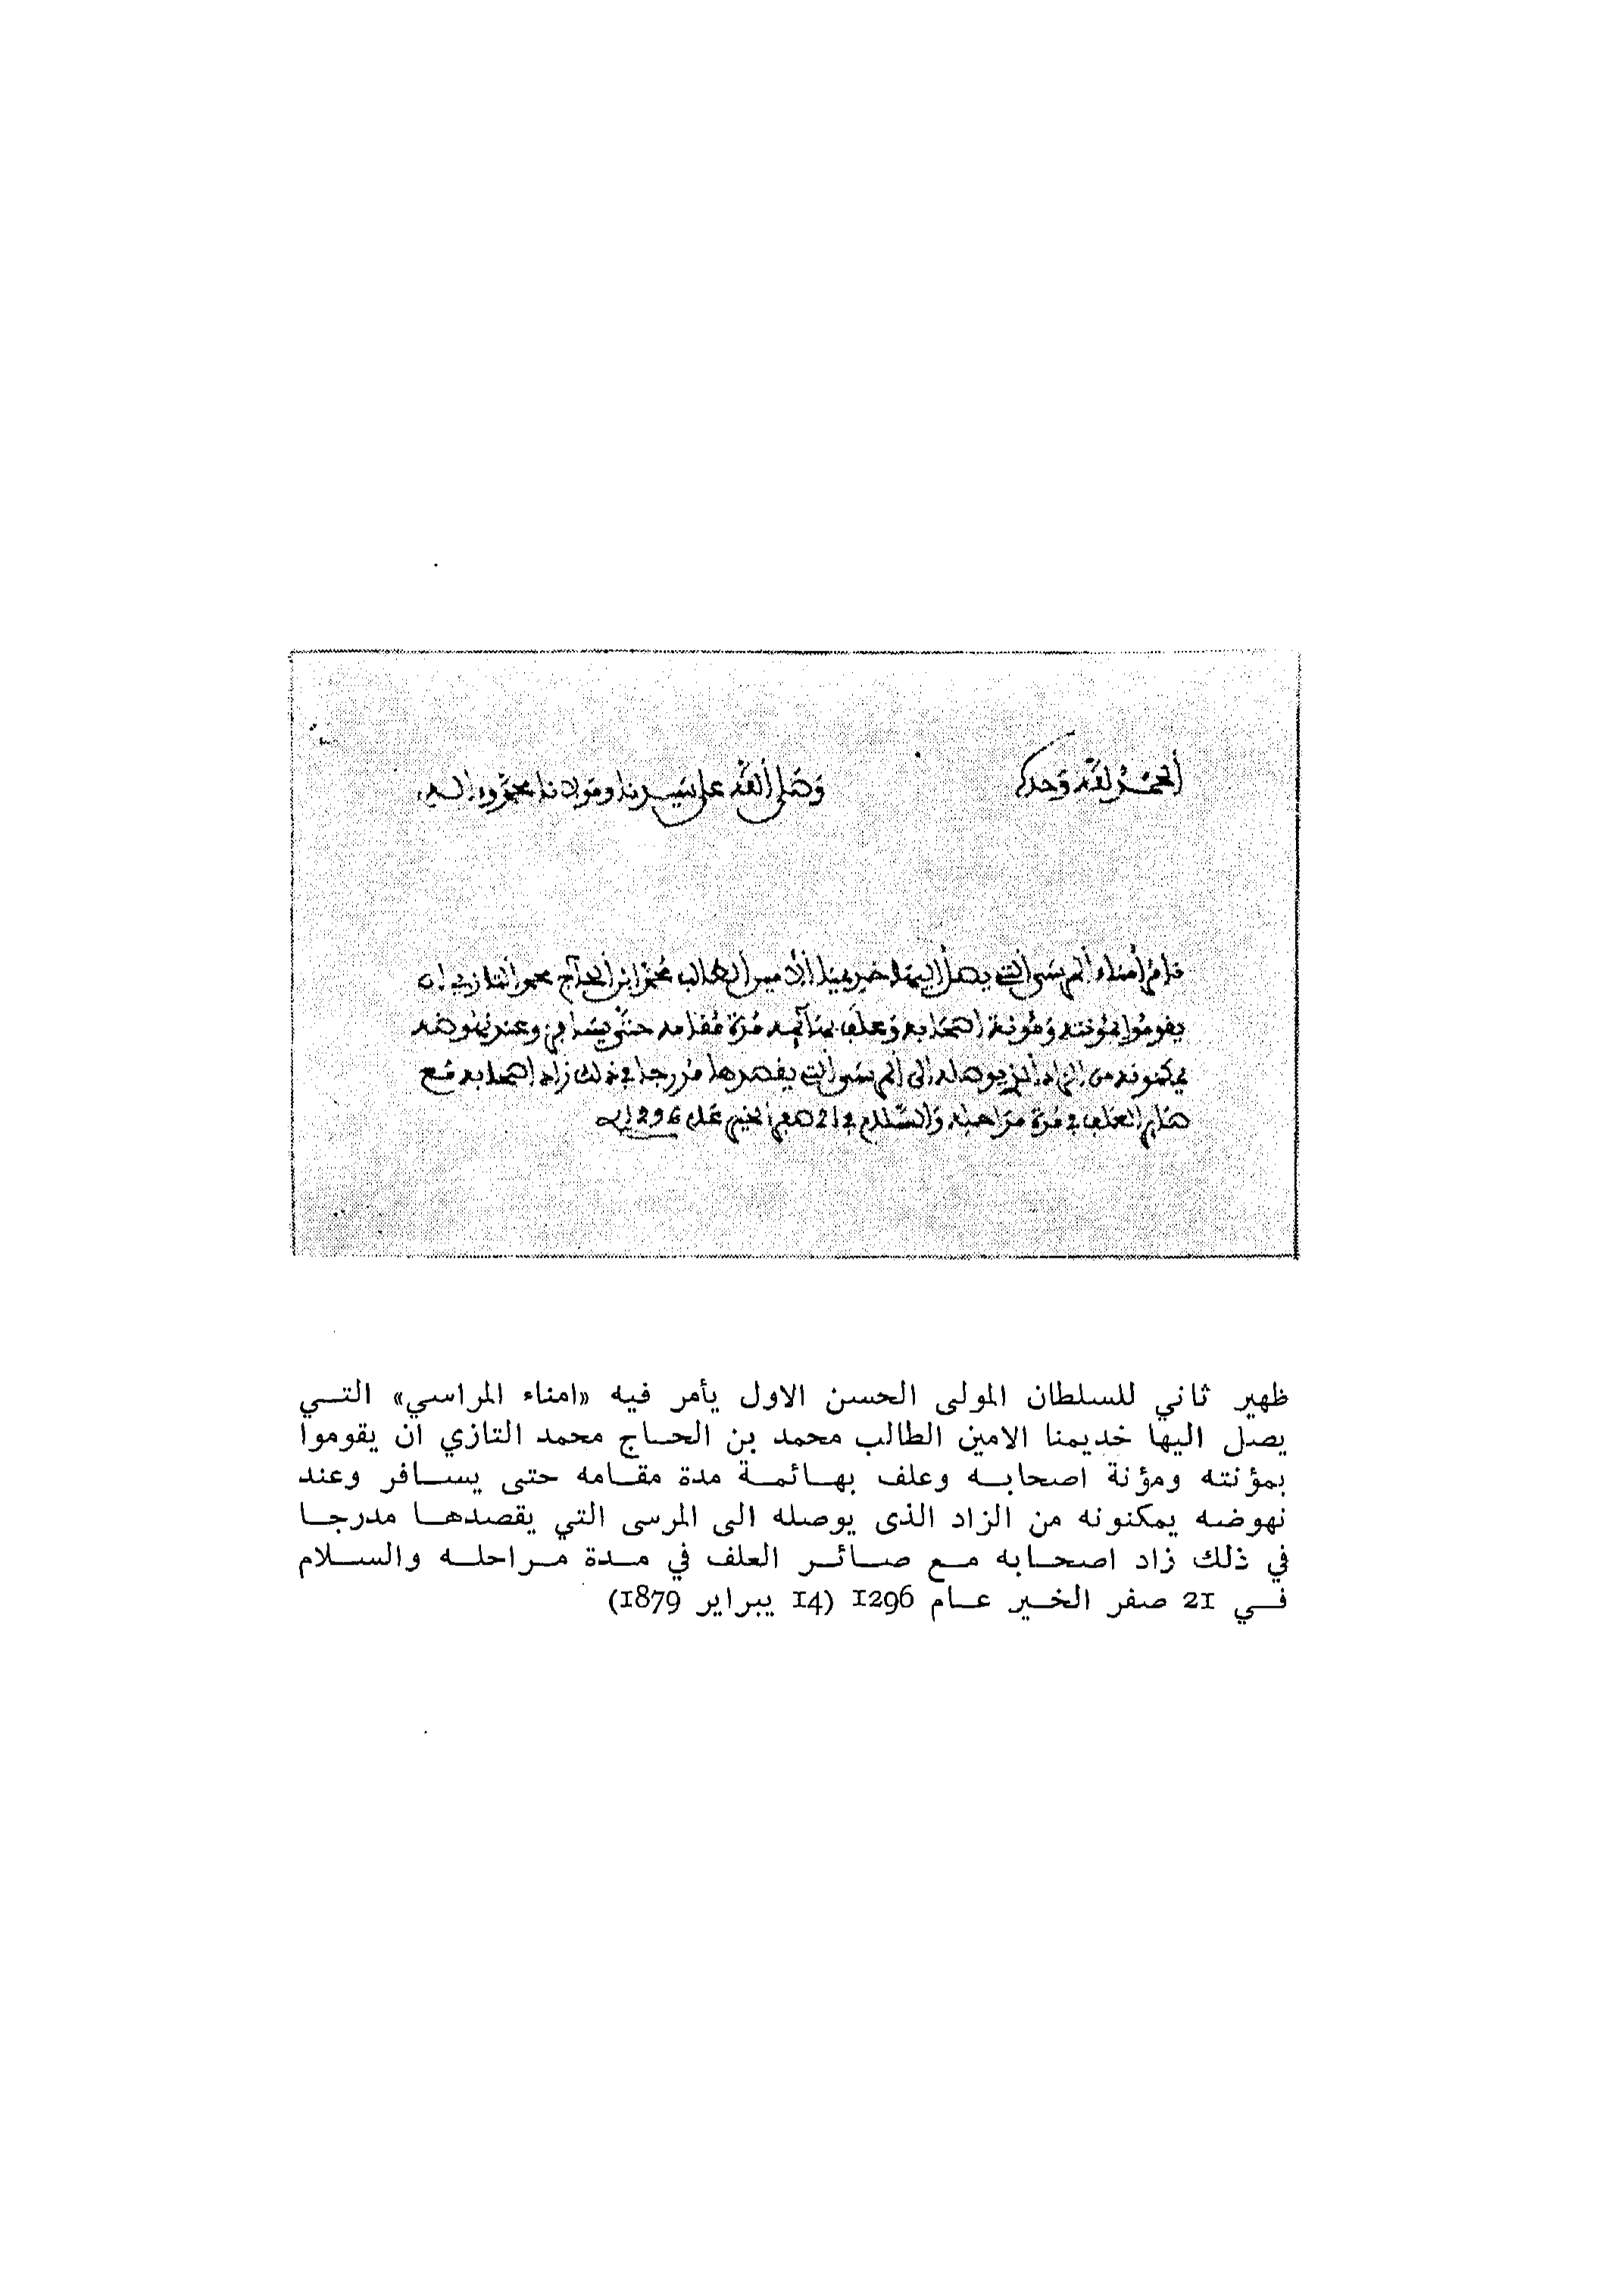 الحمد لله وحده
وصلى الله على سيدنا ومولانا محمد وءاله
نامر أمناء المرسى التي يصل اليها خديمنا الأمين الطالب محمد ابن الحاج محمد التازي ان
يقوموا بمؤنته ومؤنة اصحابه وعلف بهائمه مدة مقامه حتى يسافر وعند نهوضه
يمكنونه من الزاد الذي يوصله الى المرسى التي يقصدها مدرجا في ذلك زاد اصحابه مع
صائر العلف في مدة مراحله والسلام في 21 صفر الخير عام 1296
ظهير ثاني للسلطان المولى الحسن الاول يأمر فيه «امناء المراسي» التي
يصل اليها خديمنا الامين الطالب محمد بن الحاج محمد التازي ان يقوموا
بمؤنته ومؤنة اصحابه وعلف بهائمة مدة مقامه حتى يسافر وعند
نهوضه يمكنونه من الزاد الذى يوصله الى المرسى التي يقصدها مدرجا
في ذلك زاد اصحابه مع صائر العلف في مدة مراحله والسلام
في 21 صفر الخير عام 1296 (14 يبراير 1879)